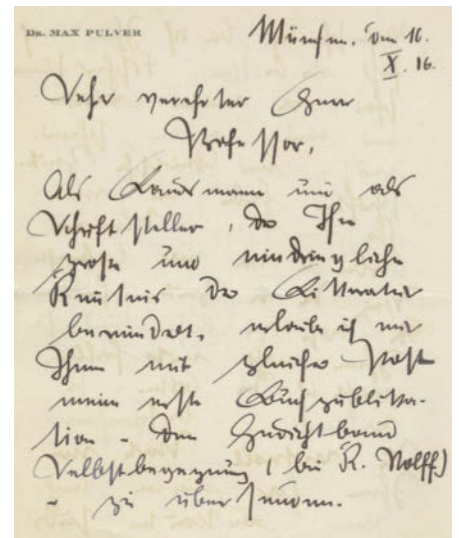 DR. MAX PULVER
München, den 16.
X. 16.
Sehr verehrter Herr
Professor,
Als Landsmann und als
Schriftsteller, der Ihre
große und eindringliche
Kenntnis der Litteratur
bewundert, erlaube ich mir
Ihnen mit gleicher Post
meine erste Buchpublika-
tion - den Gedichtband
Selbstbegegnung (bei K. Wolff)
- zu übersenden.